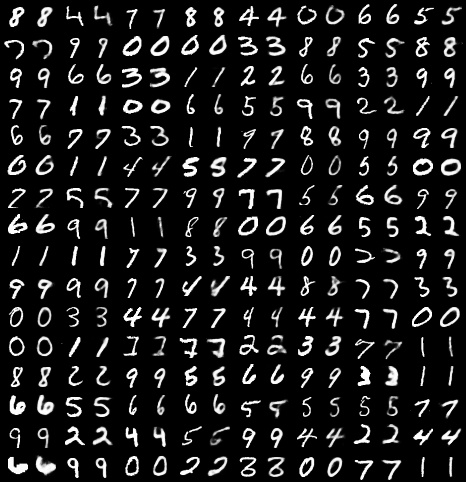 8 8 4 4 7 7 8 8 4 4 0 0 6 6 5 5
7 7 9 9 0 0 0 0 3 3 8 8 5 5 8 8
9 9 6 6 3 3 1 1 2 2 6 6 3 3 9 9
7 7 1 1 0 0 6 6 5 5 9 9 2 2 1 1
6 6 7 7 3 3 1 1 9 9 8 8 9 9 9 9
0 0 1 1 4 4 5 5 7 7 0 0 5 5 0 0
7 7 5 5 7 7 9 9 7 7 5 5 6 6 9 9
6 6 9 9 1 1 8 8 0 0 6 6 5 5 2 2
1 1 1 1 7 7 3 3 9 9 0 0 2 2 9 9
9 9 9 9 7 7 4 4 4 4 8 8 7 7 3 3
0 0 3 3 4 4 7 7 4 4 4 4 7 7 0 0
0 0 1 1 1 1 7 7 2 2 3 3 7 7 1 1
8 8 2 2 9 9 5 5 6 6 9 9 3 3 1 1
6 6 5 5 6 6 6 6 5 5 5 5 5 5 7 7
9 9 2 2 4 4 5 5 9 9 4 4 2 2 4 4
6 6 9 9 0 0 2 2 3 3 0 0 7 7 1 1